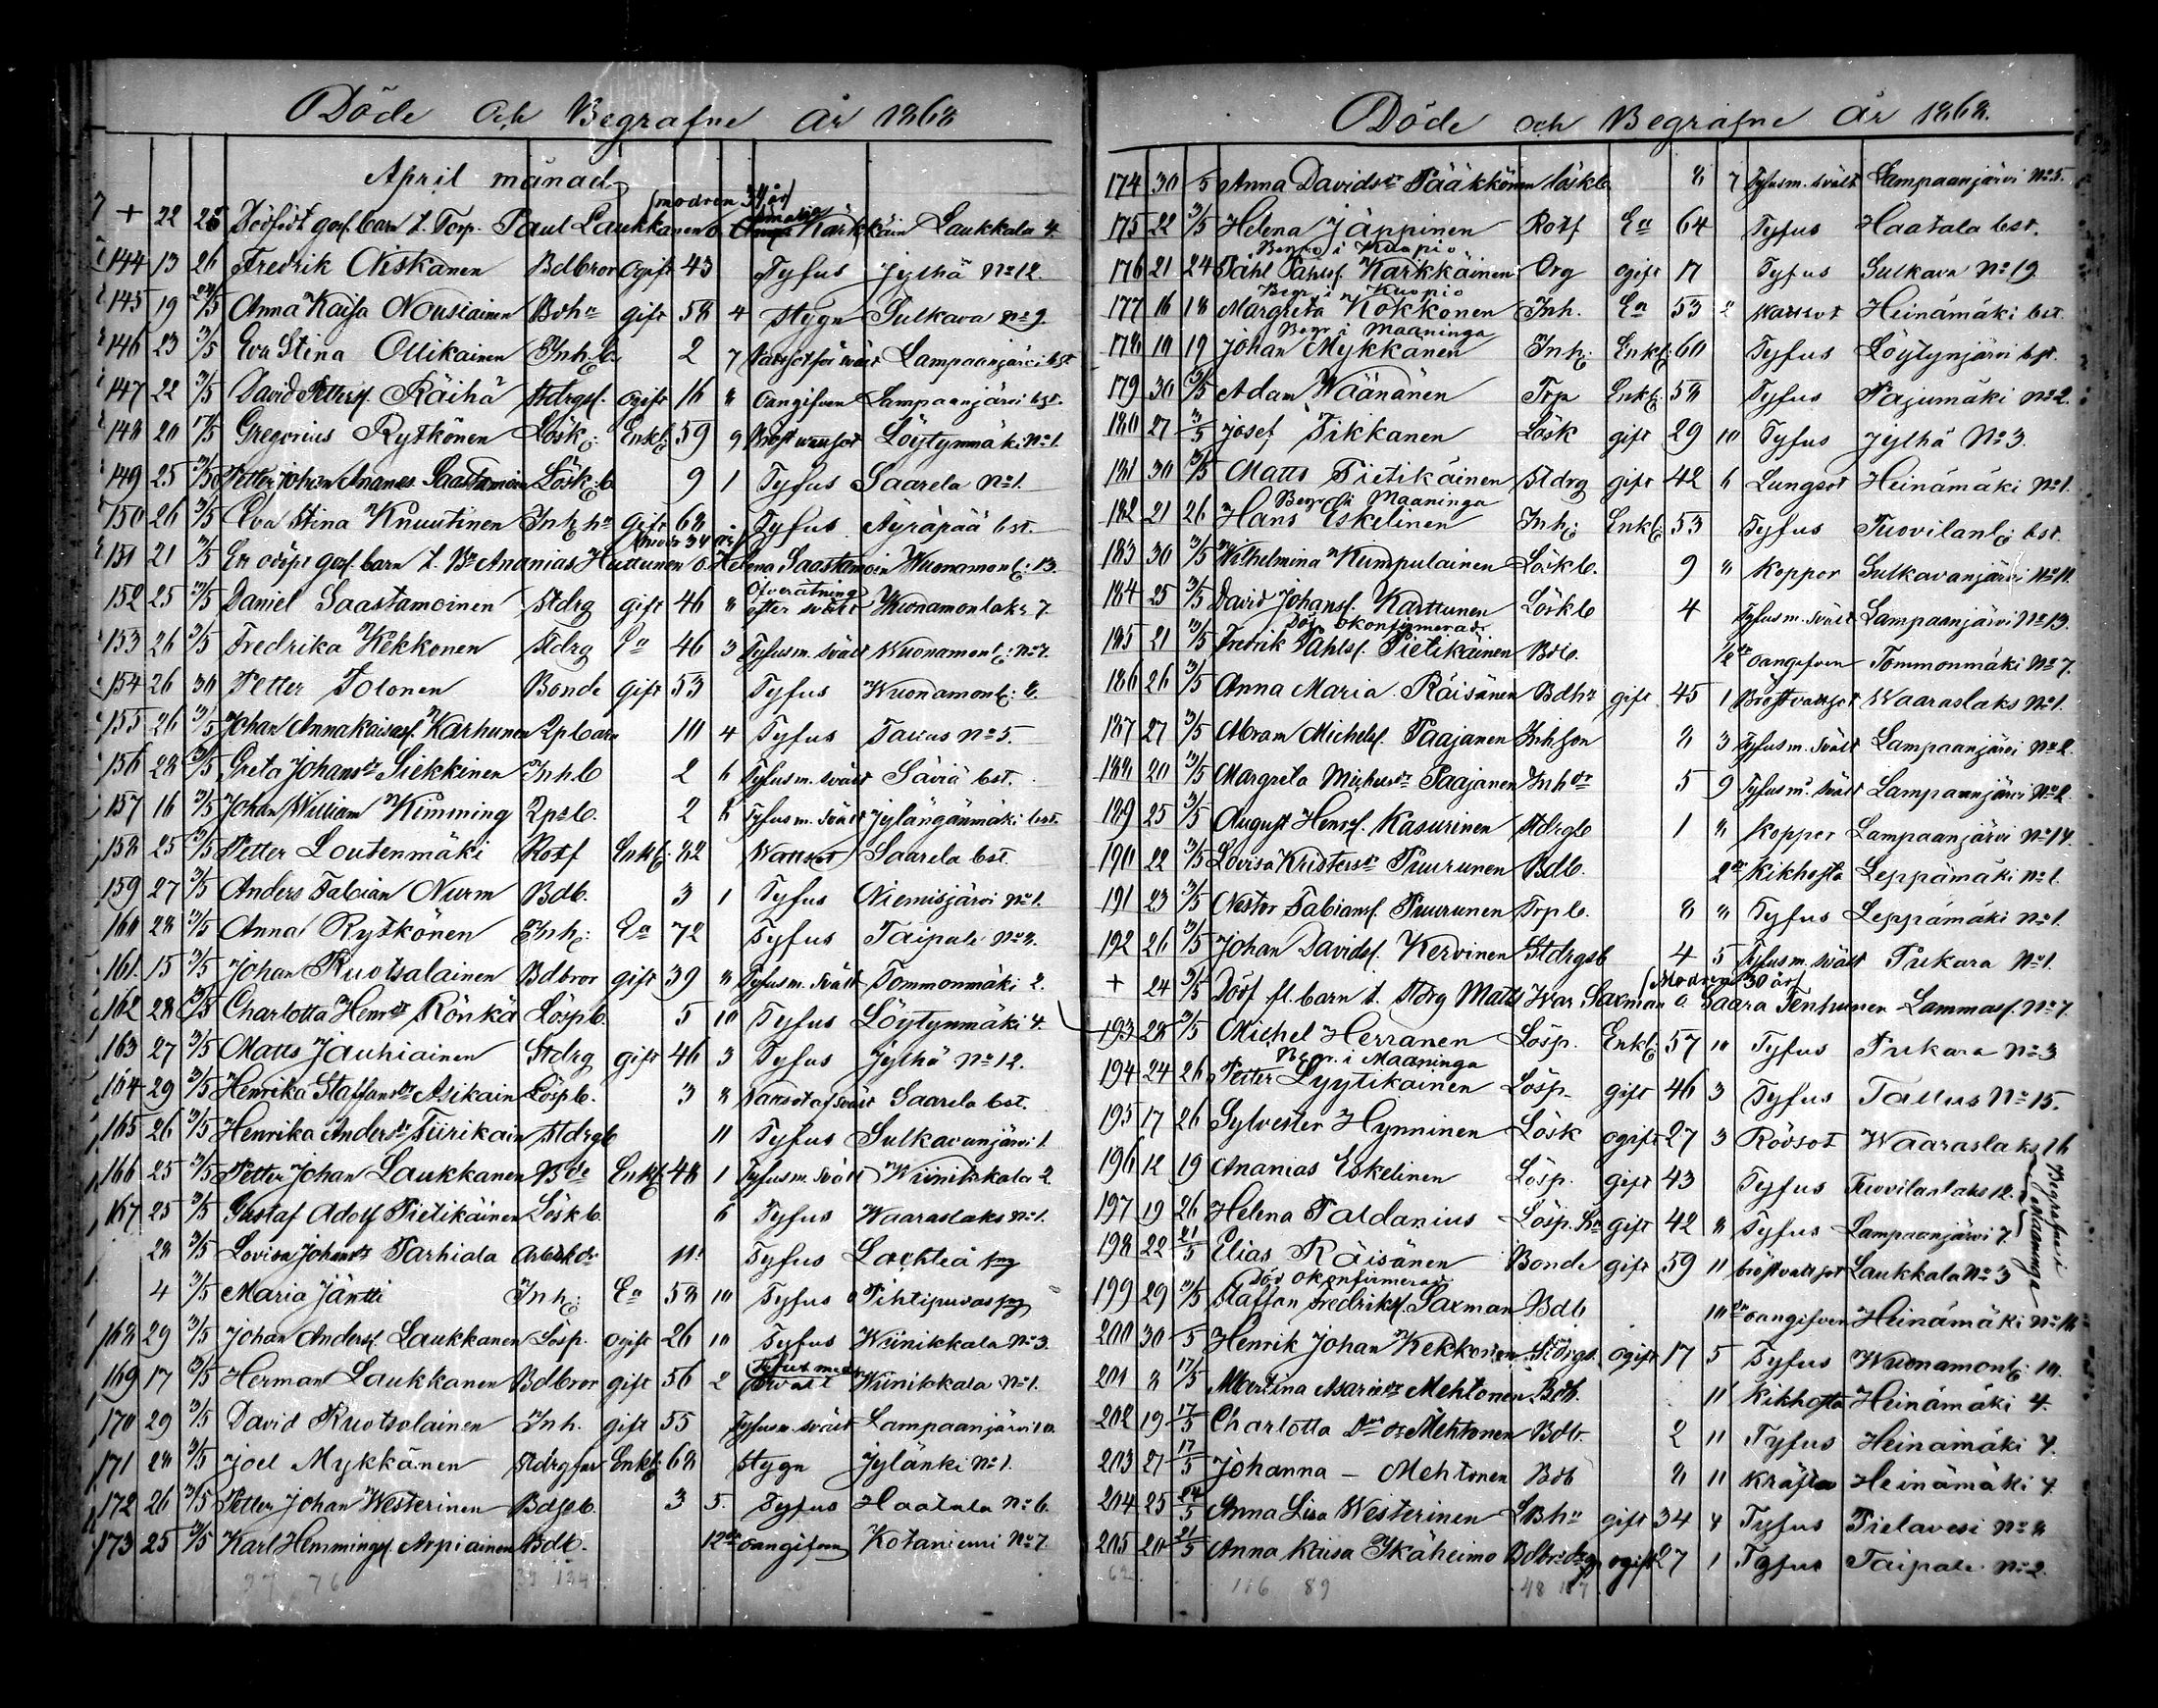 Döde och Begrafne År 1868
April månad
(modren 39 år)
+ 22 26 Dödfödt gosf. barn t. Torp. Paul Laukkanen o. Kärkkäin Laukkala 4.
144 13 26 Fredrik Niskanen Bdbror ogift 43 Tyfus Jylhä No 12.
145 19 24/5 Anna Kaisa Nousiainen Bdhu gift 58 4 Stygn Sulkava No 9.
146 23 3/5 Eva Stina Ollikainen Inh.b. 2 7 Lampaanjärvi bst
147 22 3/5 David Petterss. Räihä Stdrgs. ogift 16 8 oangifven Lampaanjärvi bst.
148 20 17/5 Gregorius Rytkönen Lösk: Enkl: 59 9 Bröstvattsot Löytynmäki No 1.
149 25 3/5 Petter Johan Ananias Saastamoin Lösk:b 9 1 Tyfus Saarela No 1.
150 26 3/5 Eva Stina Knuutinen Inh:hu gift 68 - Tyfus Äyräpää bst.
(modr 34 år)
151 21 3/5 Ett odöpt gosf. barn t. Bd Ananias Huttunen o. Helena Saastamoin Wuonamonl: 13.
152 25 3/5 Daniel Saastamoinen Stdrg gift 46 8 Öfverätning efter svält Wuonamonlaks 7.
153 26 3/5 Fredrika Kekkonen Stdrg Ea 46 3 Tyfus m. svält Wuonamonl: No 7.
154 26 30 Petter Tolonen Bonde gift 53 Tyfus Wuonamonl: 8.
155 26 3/5 Johan Annakaisas. Karhunen Qpbarn 10 4 Tyfus Taïus No 5.
156 28 3/5 Greta Johansdr Siekkinen Inhb 2 6 Tyfus m. svält Säviä bst.
157 16 3/5 Johan William Kimming Qpsb. 2 6 Tyfus m. svält Jylängänmäki bst.
158 25 3/5 Petter Loutenmäki Rotf Enkl: 82 Wattsot Saarela bst.
159 27 3/5 Anders Fabian Nurm Bdb. 3 1 Tyfus Niemisjärvi No 1.
160 28 3/5 Anna Rytkönen Inh: Ea 72 Tyfus Taipale No 8.
161 15 3/5 Johan Ruotsalainen Bdbror gift 39 8 Tyfus m. svält Tommonmäki 2.
162 28 3/5 Charlotta Henrdr Rönkä Lösp b. 5 10 Tyfus Löytynmäki 4.
163 27 3/5 Matts Jauhiainen Stdrg gift 46 3 Tyfus Jylhä No 12.
164 29 3/5 Henrika Staffansdr Asikain Lösp b. 3 8 Saarela bst.
165 26 3/5 Henrika Andersdr Tiirikain Stdrgb 11 Tyfus Sulkavanjärvi 1.
166 25 3/5 Petter Johan Laukkanen Bde Enkl: 48 1 Tyfus m. svält Wiinikkala 2.
167 25 3/5 Gustaf Adolf Pietikäinen Lösk b. 6 Tyfus Waaraslaks No 1.
28 3/5 Lovisa Johansdr Parhiala 11 Tyfus Lachteå
4 3/5 Maria Jäntti Inh: Ea 58 10 Tyfus Pihtipudas
168 29 3/5 Johan Anderss. Laukkanen Lösp. ogift 26 10 Tyfus Wiinikkala No 3.
169 17 3/5 Herman Laukkanen Bdbror gift 56 2 Tyfus med svält Wiinikkala No 1.
170 29 3/5 David Ruotsolainen Inh. gift 55 Tyfus m. svält Lampaanjärvi 10.
171 28 3/5 Joel Mykkänen Stdrgfar Enkl: 68 Stygn Jylänki No 1.
172 26 3/5 Petter Johan Westerinen Bdsb. 3 5. Tyfus Haatala No 6.
173 25 3/5 Karl Hemmings. Arpiainen Bdb. 12dr oangifven Kotaniemi No 7
37 76 39 134
Döde och Begrafne År 1868.
174 30 /5 Anna Davidsdr Pääkkönen löskb 8 7 Tyfus m. svält Lampaanjärvi No 5.
175 22 3/5 Helena Jäppinen Rotf Ea 64 Tyfus Haatala bst.
Begr. i Kuopio
176 21 24 Påhl Påhlss. Karkkäinen Drg ogift 17 Tyfus Sulkava No 19
Begr. i Kuopio
177 16 18 Margreta Kokkonen Inh. Ea 53 2 Wattsot Heinämäki bst.
Begr. i Maaninga
178 10 19 Johan Mykkänen Inh: Enkl: 60 Tyfus Löytynjärvi bst.
179 30 3/5 Adam Wäänänen Trp Enkl: 58 Tyfus Pajumäki No 2.
180 27 3/5 Josef Tikkanen Lösk gift 29 10 Tyfus Jylhä No 3.
181 30 3/5 Matts Pietikäinen Stdrg gift 42 6 Lungsot Heinämäki No 1.
Begr. i Maaninga
182 21 26 Hans Eskelinen Inh: Enkl: 53 Tyfus Tuovilanl: bst.
183 30 3/5 Wilhelmina Kumpulainen Lösk b. 9 8 Koppor Sulkavanjärvi No 11.
184 25 3/5 David Johanss. Karttunen Löskb 4 Tyfus m. svält Lampaanjärvi No 13.
Död okonfirmerad
185 21 3/5 Fredrik Påhlss. Pietikäinen Bdb. 1/2 oangifven Tommonmäki No 7.
186 26 3/5 Anna Maria Räisänen Bdhu gift 45 1 Bröstvattsot Waaraslaks No 1.
187 27 3/5 Abram Michelss. Paajanen Inhson 8 3 Tyfus m. svält Lampaanjärvi No 2.
188 20 3/5 Margreta Michelsdr Paajanen Inhdr 5 9 Tyfus m. svält Lampaanjärvi No 2.
189 25 3/5 August Henrs. Kasurinen Stdrgb 1 8 Koppor Lampaanjärvi No 14.
190 22 3/5 Lovisa Kristersdr Puurunen Bdb. 2dr Kikhosta Leppämäki No 1.
191 23 3/5 Nestor Fabianss. Puurunen Trp b. 8 8 Tyfus Leppämäki No 1.
192 26 3/5 Johan Davidss. Kervinen Stdrgsb 4 5 Tyfus m. svält Pukara No 1.
(Modren 30 år)
+ 24 3/5 Dödf. fl. barn t. Stdrg Matts Iwar Saxman o. Saara Tenhunen Lammass. No 7.
193 28 3/5 Michel Herranen Lösp. Enkl: 57 10 Tyfus Pukara No 3
Begr. i Maaninga
194 24 26 Petter Lyytikäinen Lösp. gift 46 3 Tyfus Tallus No 15.
195 17 26 Sylvester Hynninen Lösk ogift 27 3 Rödsot Waaraslaks 16
196 12 19 Ananias Eskelinen Lösp. gift 43 Tyfus Tuovilanlaks 12.
197 19 26 Helena Paldanius Lösp. hu gift 42 8 Tyfus Lampaanjärvi 7
Begrafne i Maaninga
198 22 21/5 Elias Räisänen Bonde gift 59 11 bröstvattsot Laukkala No 3
Död okonfirmerad
199 29 3/5 Staffan Fredrikss. Saxman Bdb 10dr oangifven Heinämäki No 16
200 30 /5 Henrik Johan Kekkonen Stdrgs. ogift 17 5 Tyfus Wuonamonl: 10.
201 8 17/5 Albertina Asariedr Mehtonen Bdb. 11 Kikhosta Heinämäki 4.
202 19 17/5 Charlotta Do dr Mehtonen Bdb. 2 11 Tyfus Heinämäki 4.
203 27 17/5 Johanna - Mehtonen Bdb 8 11 Kräfta Heinämäki 4
204 25 24/5 Anna Lisa Westerinen LBhu gift 34 4 Tyfus Pielavesi No 8
205 20 21/5 Anna Kaisa Ikäheimo ogift 27 1 Tyfus Taipale No 2.
62 116 89 48 187